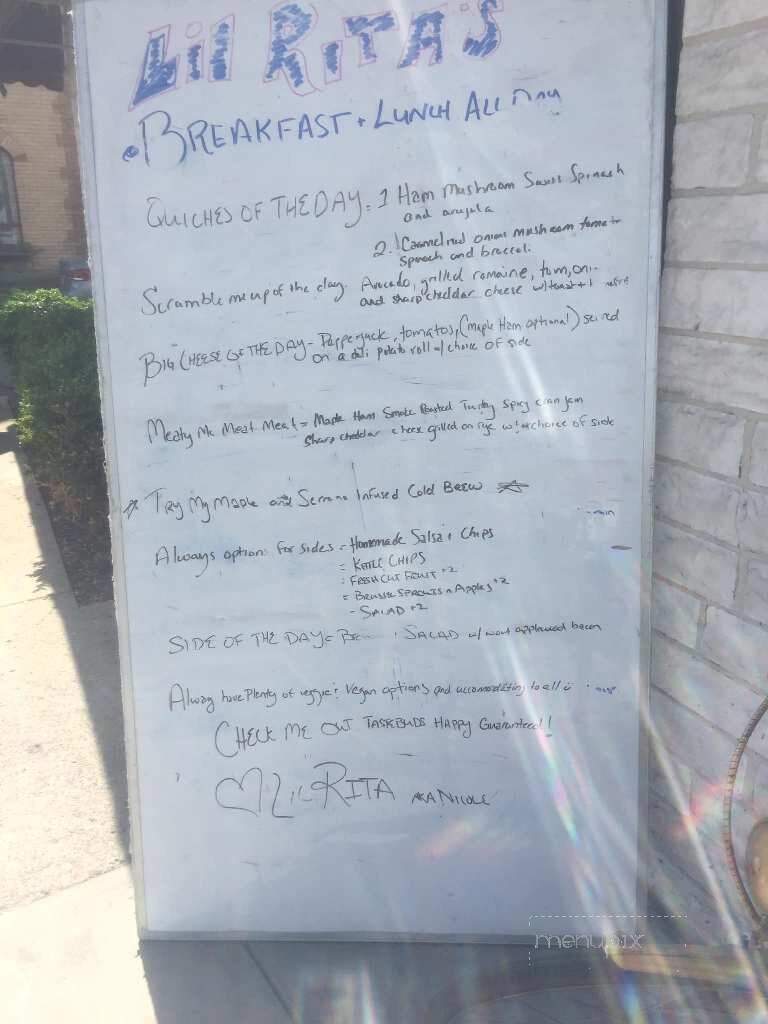 LIL RITA'S
BREAKFAST + LUNCH ALL DAY
QUICHES OF THE DAY = 1 Ham Mushroom Swiss Spinach
and arugula
2. Caramelized onion mushroom tomato
spinach and broccoli
Scramble me up of the day. Avocado, grilled romaine, tom, oni
and sharp cheddar cheese w/toast +1
BIG CHEESE OF THE DAY - Pepperjack, tomatos, (maple Ham optional) served
on a deli potato roll w/choice of side
Meaty Mc Meat Meat = Maple Ham Smoke Roasted Turkey Spicy cran jam
Sharp cheddar cheese grilled on rye w/ choice of side
Try My Maple and Serrano Infused Cold Brew
Always option for sides = Homemade Salsa + Chips
= Kettle CHIPS
: FRESH CUT FRUIT +2
= BRUSSEL SPROUTS n Apples +2
- SALAD +2
SIDE OF THE DAY = SALAD w/ applewood bacon
Always have Plenty of veggie + Vegan options and accommodating to all
CHECK ME OUT TASTEBUDS HAPPY Guaranteed!
LIL RITA AKA NICOLE
menupix